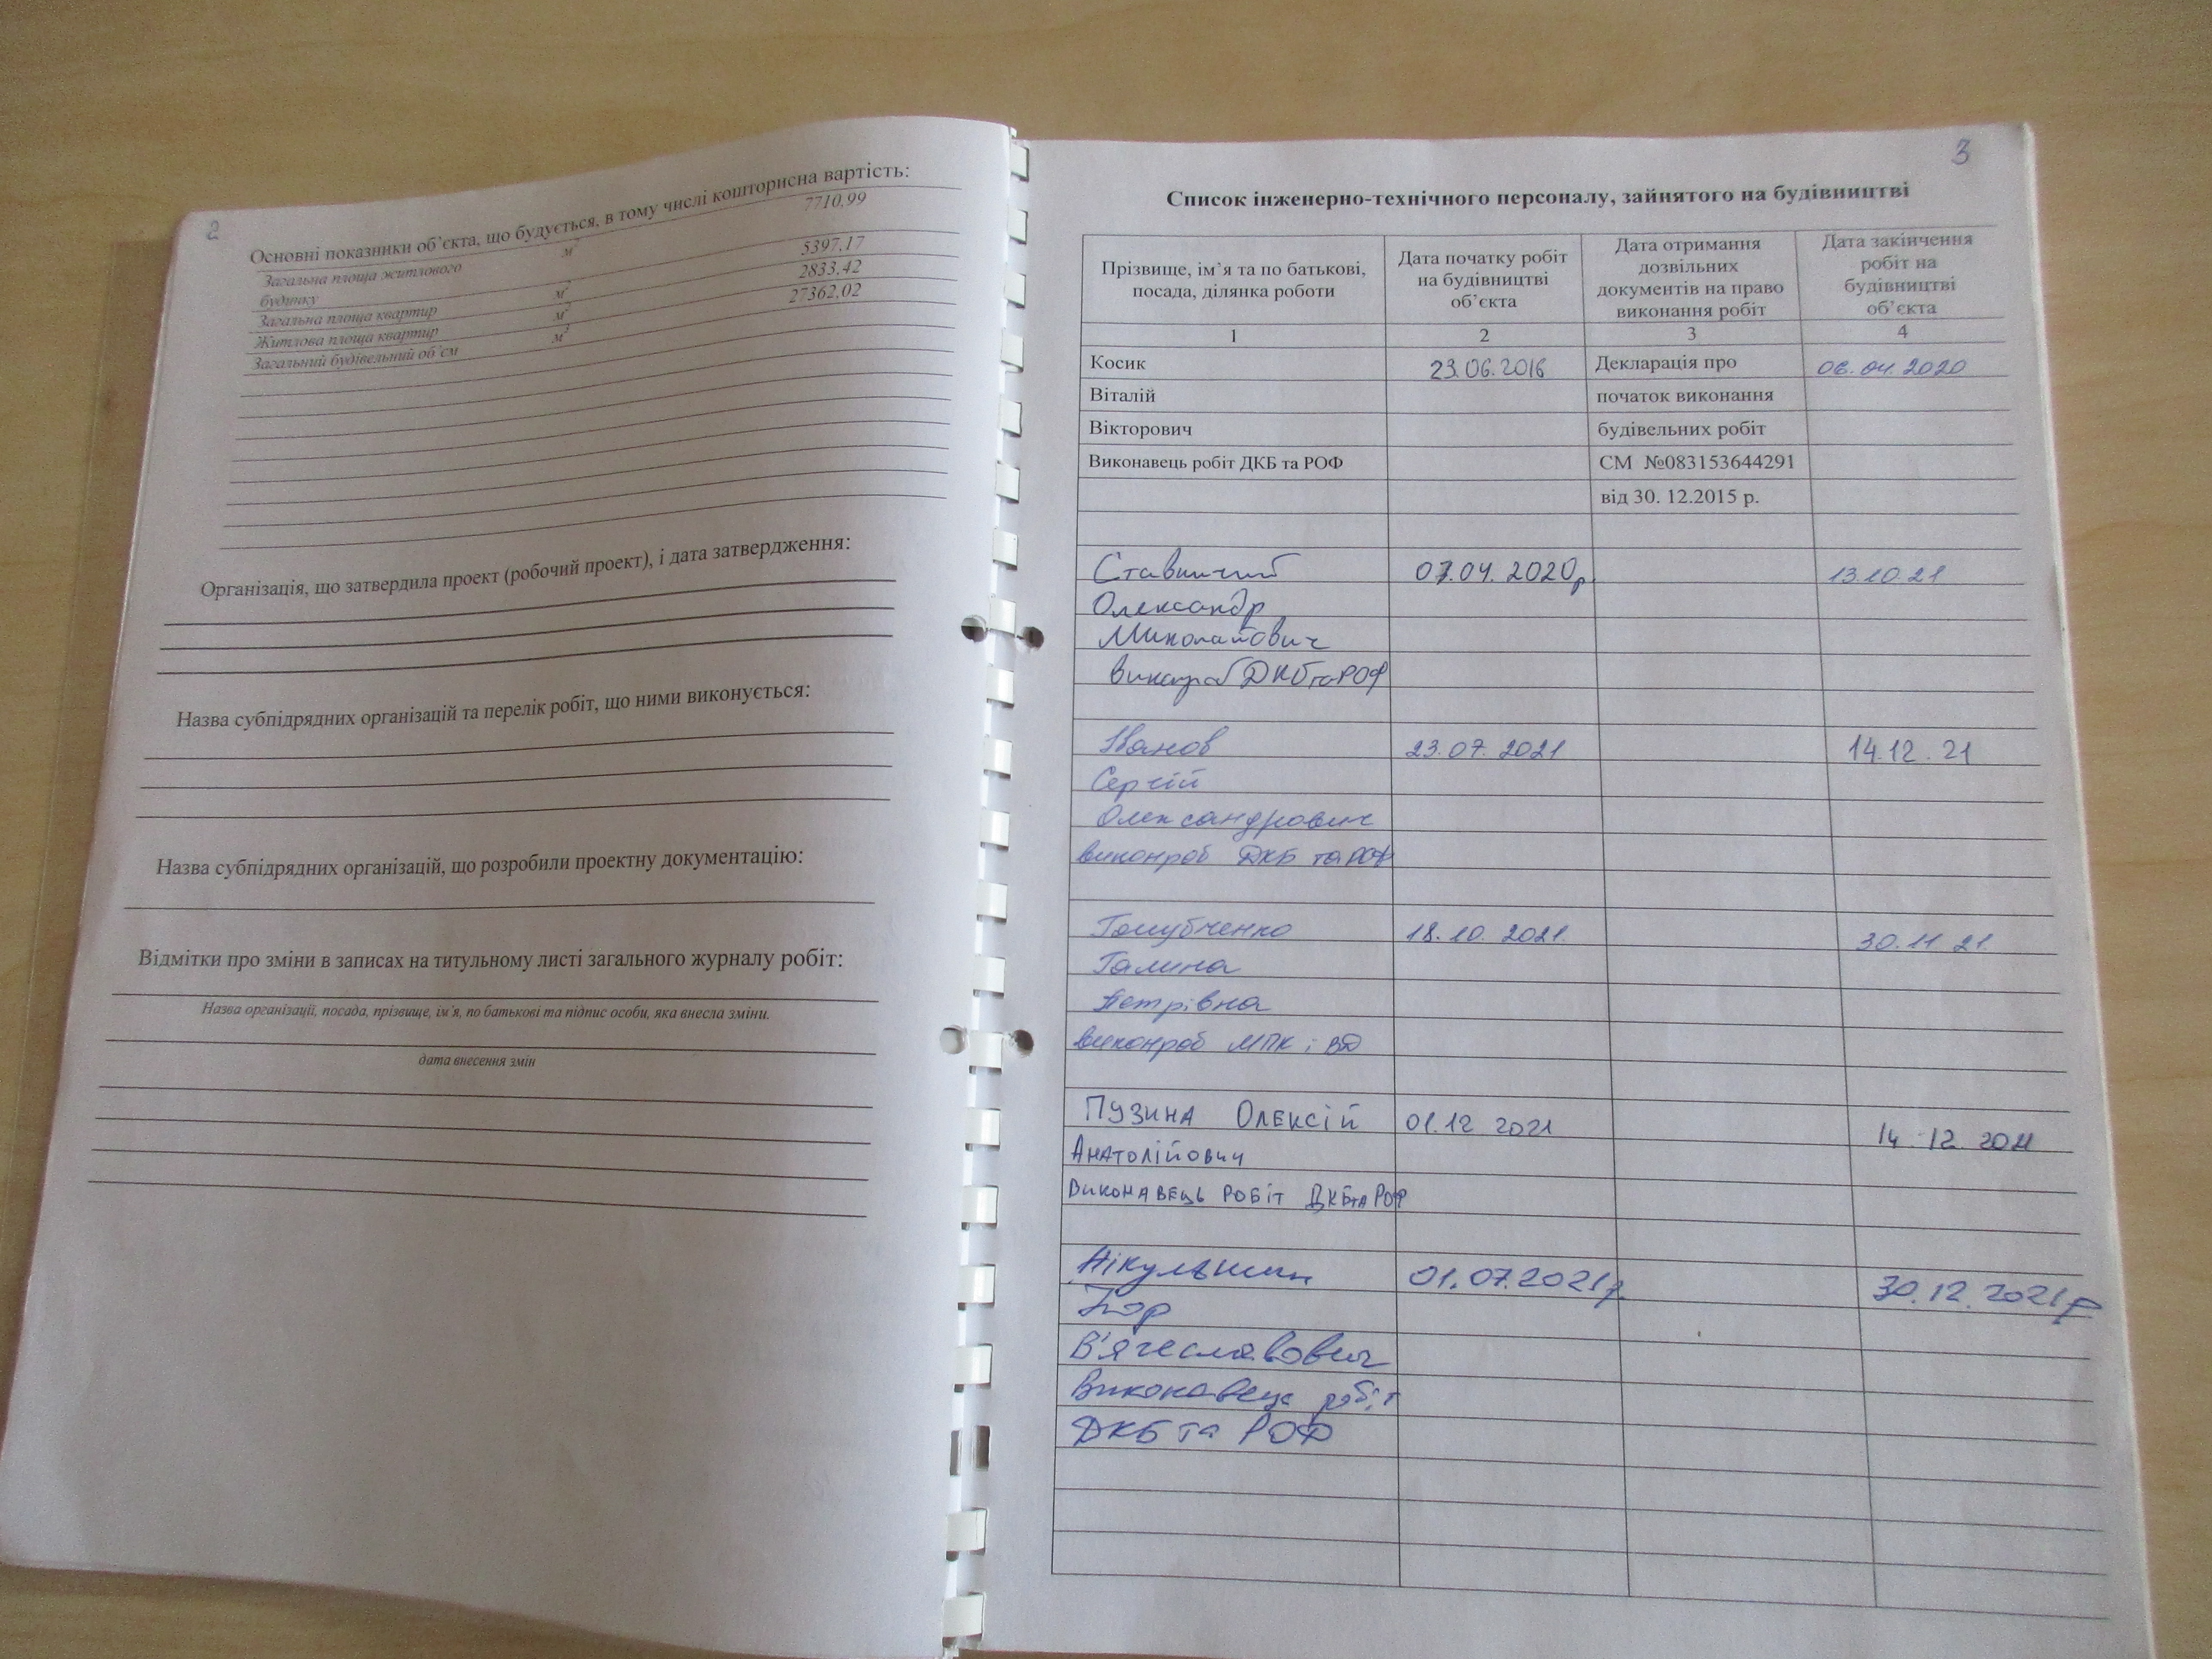 2
Основні показники об’єкта, що будується, в тому числі кошторисна вартість:
Загальна площа житлового будинку м² 7710,99
Загальна площа квартир м² 5397,17
Житлова площа квартир м² 2833,42
Загальний будівельний об’єм м³ 27362,02
Організація, що затвердила проект (робочий проект), і дата затвердження:
Назва субпідрядних організацій та перелік робіт, що ними виконується:
Назва субпідрядних організацій, що розробили проектну документацію:
Відмітки про зміни в записах на титульному листі загального журналу робіт:
Назва організації, посада, прізвище, ім’я, по батькові та підпис особи, яка внесла зміни.
дата внесення змін
3
Список інженерно-технічного персоналу, зайнятого на будівництві
Прізвище, ім’я та по батькові, посада, ділянка роботи
Дата початку робіт на будівництві об’єкта
Дата отримання дозвільних документів на право виконання робіт
Дата закінчення робіт на будівництві об’єкта
1 2 3 4
Косик 23.06.2016 Декларація про 06.04.2020
Віталій початок виконання
Вікторович будівельних робіт
Виконавець робіт ДКБ та РОФ СМ №083153644291
від 30. 12.2015 р.
07.04. 2020р. 13.10.21
Олександр
Миколайович
ДКБ та РОФ
Іванов 23.07.2021 14.12.21
Сергій
Олександрович
виконроб ДКБ та РОФ
Голубченко 18.10.2021. 30.11.21
Галина
Петрівна
виконроб МПК і ВД
ПУЗИНА ОЛЕКСІЙ 01.12 2021 14.12.2021
АНАТОЛІЙОВИЧ
ВИКОНАВЕЦЬ РОБІТ ДКБ та РОФ
Нікульшин 01.07.2021р. 30.12.2021р
Ігор
В'ячеславович
Виконавець робіт
ДКБ та РОФ